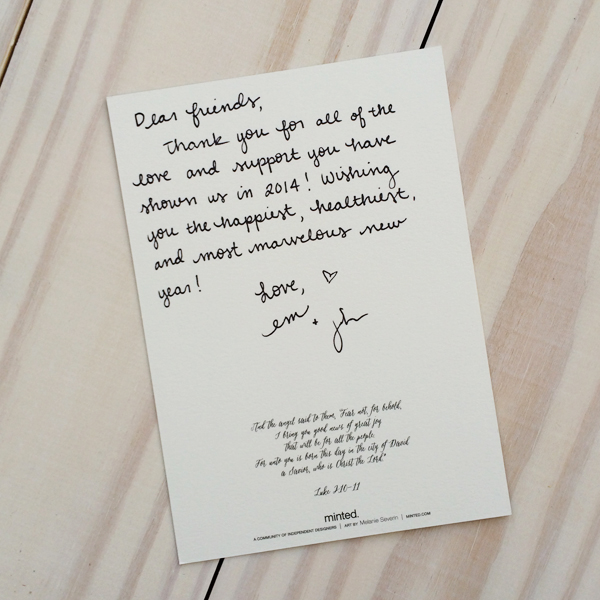 Dear friends,
Thank you for all of the
love and support you have
shown us in 2014! Wishing
you the happiest, healthiest,
and most marvelous new
year!
Love, ♡
em + jh
"And the angel said to them, "Fear not, for behold,
I bring you good news of great joy
that will be for all the people.
For unto you is born this day in the city of David
a Savior, who is Christ the Lord."
Luke 2:10-11
minted.
A COMMUNITY OF INDEPENDENT DESIGNERS | ART BY Melanie Severin | MINTED.COM